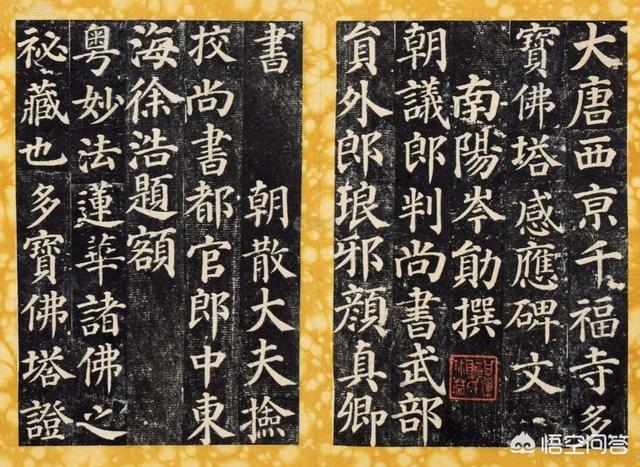 大唐西京千福寺多
寶佛塔感應碑文
南陽岑勛撰
朝議郎判尚書武部
員外郎琅邪顏真卿
書　朝散大夫撿
挍尚書都官郎中東
海徐浩題額
粵妙法蓮華諸佛之
祕藏也多寶佛塔證
悟空问答